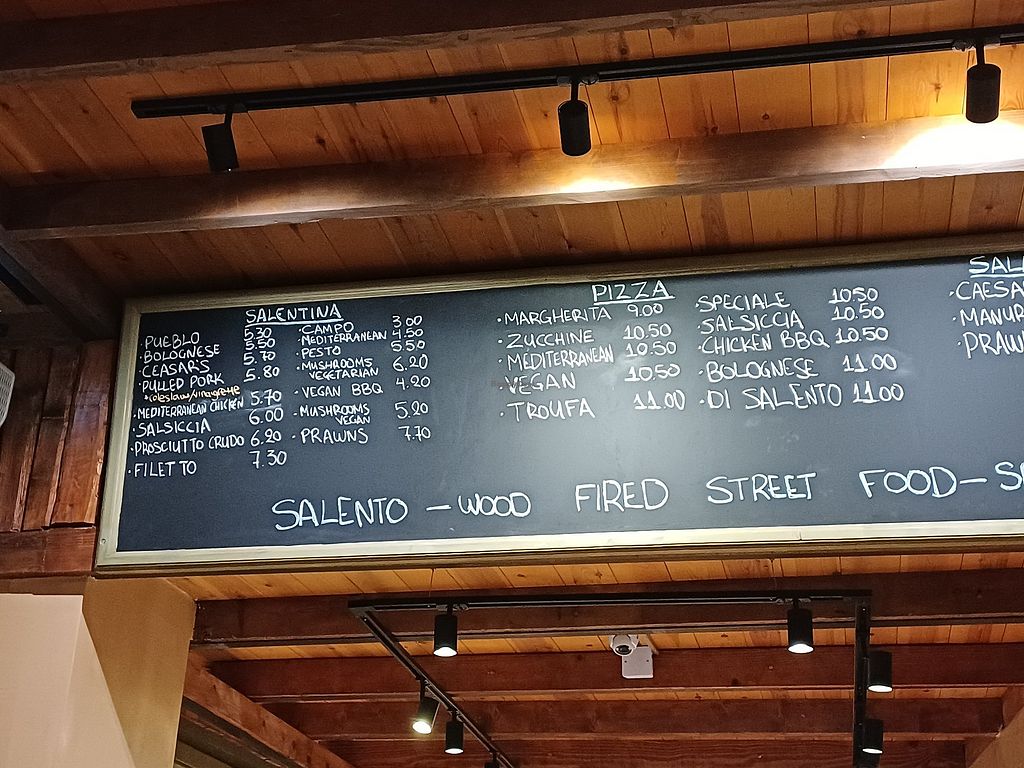 SALENTINA
PUEBLO 5.30
BOLOGNESE 5.50
CEASAR'S 5.70
PULLED PORK 5.80
coleslaw/vinaigrette
MEDITERRANEAN CHICKEN 5.70
SALSICCIA 6.00
PROSCIUTTO CRUDO 6.20
FILETTO 7.30
CAMPO 3.00
MEDITERRANEAN 4.50
PESTO 5.50
MUSHROOMS 6.20
VEGETARIAN
VEGAN BBQ 4.20
MUSHROOMS 5.20
VEGAN
PRAWNS 7.70
PIZZA
MARGHERITA 9.00
ZUCCHINE 10.50
MEDITERRANEAN 10.50
VEGAN 10.50
TROUFA 11.00
SPECIALE 10.50
SALSICCIA 10.50
CHICKEN BBQ 10.50
BOLOGNESE 11.00
DI SALENTO 11.00
SAL
CAESA
MANUR
PRAWN
SALENTO - WOOD FIRED STREET FOOD - S